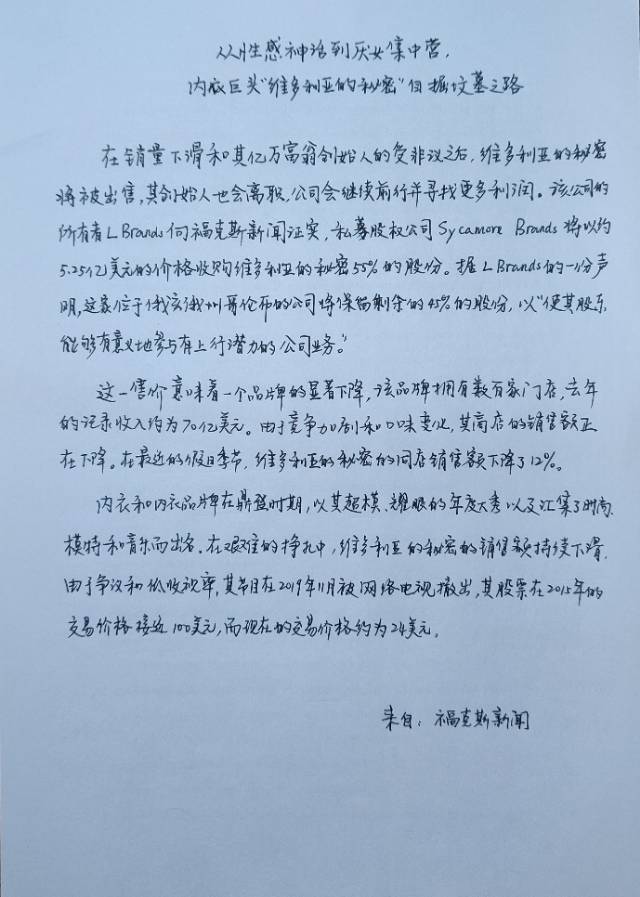 从性感神话到厌女集中营,
内衣巨头“维多利亚的秘密”自掘坟墓之路
在销量下滑和其亿万富翁创始人的受非议之后,维多利亚的秘密
将被出售,其创始人也会离职,公司会继续前行并寻找更多利润。该公司的
所有者L Brands向福克斯新闻证实,私募股权公司Sycamore Brands将以约
5.25亿美元的价格收购维多利亚的秘密55%的股份。据L Brands的一份声
明,这家位于俄亥俄州哥伦布的公司将保留剩余的45%的股份,以“使其股东
能够有意义地参与有上行潜力的公司业务。”
这一售价意味着一个品牌的显著下降,该品牌拥有数百家门店,去年
的记录收入约为70亿美元。由于竞争加剧和口味变化,其商店的销售额正
在下降。在最近的假日季节,维多利亚的秘密的同店销售额下降了12%。
内衣和内衣品牌在鼎盛时期,以其超模、耀眼的年度大秀以及汇集了时尚、
模特和音乐而出名。在艰难的挣扎中,维多利亚的秘密的销售额持续下滑.
由于争议和低收视率,其节目在2019年11月被网络电视撤出,其股票在2015年的
交易价格接近100美元,而现在的交易价格约为24美元。
来自:福克斯新闻